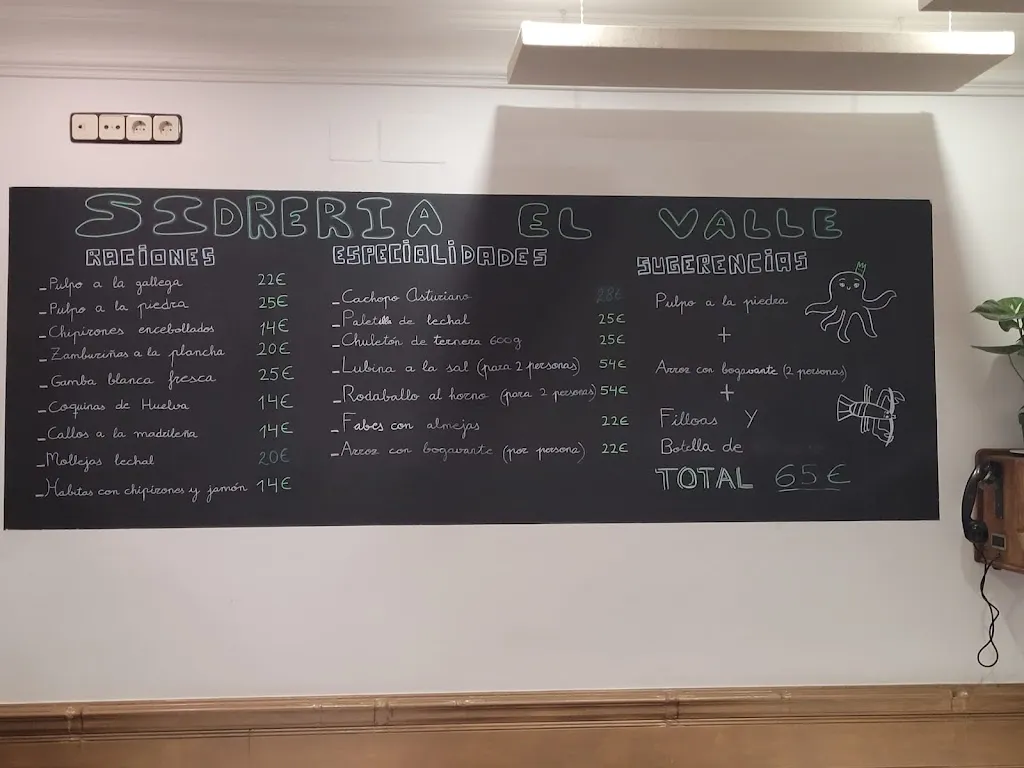 SIDRERIA EL VALLE
RACIONES
_Pulpo a la gallega 22€
_Pulpo a la piedra 25€
_Chipirones encebollados 14€
_Zamburiñas a la plancha 20€
_Gamba blanca fresca 25€
_Coquinas de Huelva 14€
_Callos a la madrileña 14€
_Mollejas lechal 20€
_Habitas con chipirones y jamón 14€
ESPECIALIDADES
_Cachopo Asturiano 28€
_Paletilla de lechal 25€
_Chuletón de ternera 600g 25€
_Lubina a la sal (para 2 personas) 54€
_Rodaballo al horno (para 2 personas) 54€
_Fabes con almejas 22€
_Arroz con bogavante (por persona) 22€
SUGERENCIAS
Pulpo a la piedra
+
Arroz con bogavante (2 personas)
+
Filloas y
Botella de
TOTAL 65€